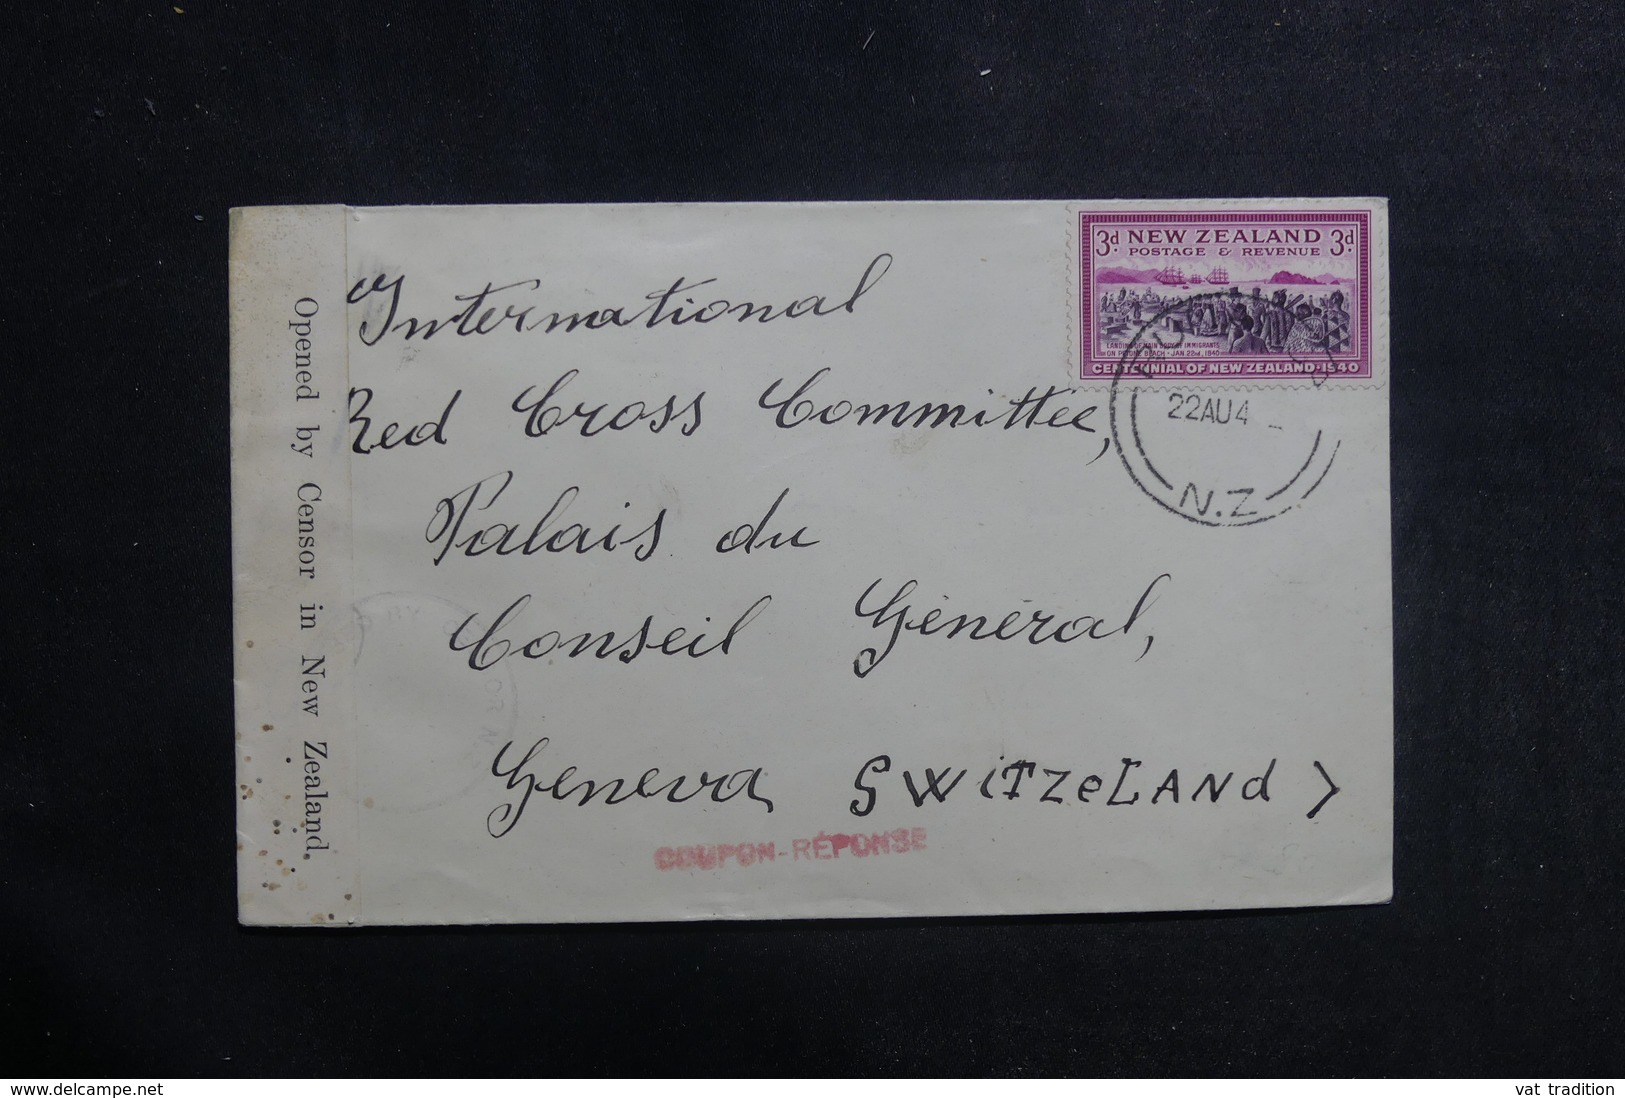 3d NEW ZEALAND 3d
POSTAGE & REVENUE
LANDING OF MAIN BODY OF IMMIGRANTS
ON PETONE BEACH · JAN 22nd, 1840
CENTENNIAL OF NEW ZEALAND · 1940
22AU4
N.Z
Opened by Censor in New Zealand.
International
Red Cross Committee,
Palais du
Conseil Général,
Geneva, SWiTZeLANd
COUPON-RÉPONSE
delcampe.net
vat tradition